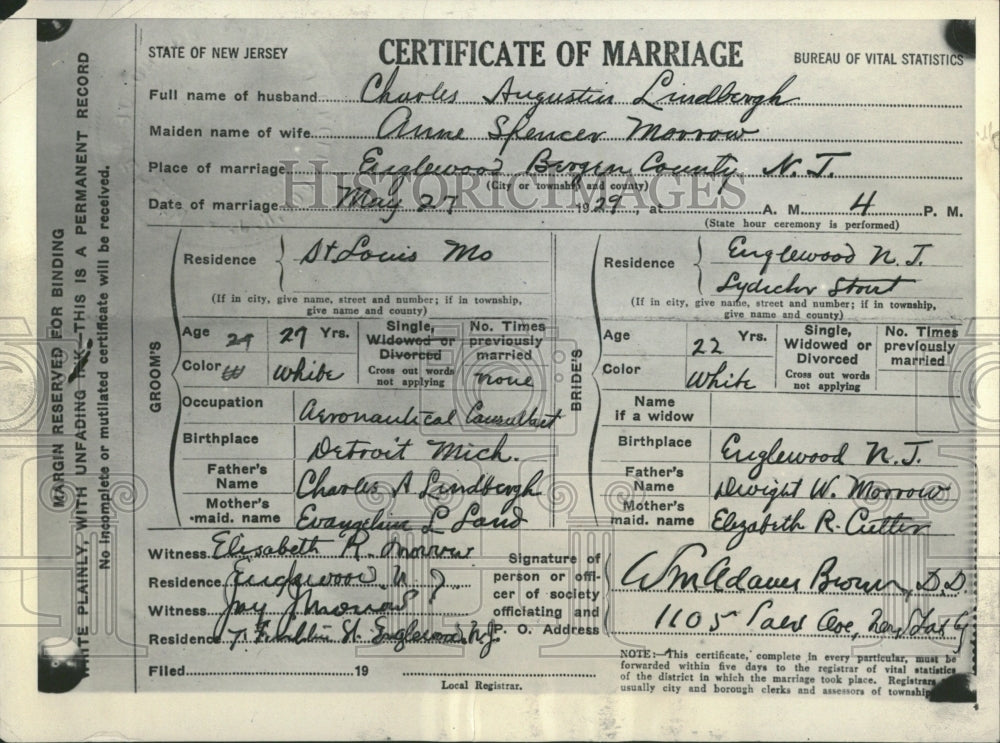 STATE OF NEW JERSEY CERTIFICATE OF MARRIAGE BUREAU OF VITAL STATISTICS
Full name of husband Charles Augustin Lindbergh
Maiden name of wife Anne Spencer Morrow
Place of marriage Englewood Bergen County N. J.
(City or township and county)
HISTORICIMAGES
Date of marriage May 27 1929, at A. M. 4 P. M.
(State hour ceremony is performed)
MARGIN RESERVED FOR BINDING
WRITE PLAINLY, WITH UNFADING INK—THIS IS A PERMANENT RECORD
No incomplete or mutilated certificate will be received.
GROOM'S
Residence St Louis Mo
(If in city, give name, street and number; if in township,
give name and county)
Age 29 27 Yrs.
Single,
Widowed or
Divorced
Cross out words
not applying
No. Times
previously
married
none
Color W White
Occupation Aeronautical Consultant
Birthplace Detroit Mich.
Father's
Name Charles A Lindbergh
Mother's
maid. name Evangeline L Land
BRIDE'S
Residence Englewood N. J.
Lydecker Street
(If in city, give name, street and number; if in township,
give name and county)
Age 22 Yrs.
Single,
Widowed or
Divorced
Cross out words
not applying
No. Times
previously
married
Color White
Name
if a widow
Birthplace Englewood N. J.
Father's
Name Dwight W. Morrow
Mother's
maid. name Elizabeth R. Cutter
Witness Elisabeth R. Morrow
Residence Englewood N. J.
Witness Jay J Morrow
Residence Franklin St. Englewood N.J.
Signature of
person or offi-
cer of society
officiating and
P. O. Address
Wm Adams Brown, D.D.
1105 Park Ave,
Filed 19
Local Registrar.
NOTE:—This certificate, complete in every particular, must be
forwarded within five days to the registrar of vital statistics
of the district in which the marriage took place. Registrars
usually city and borough clerks and assessors of township